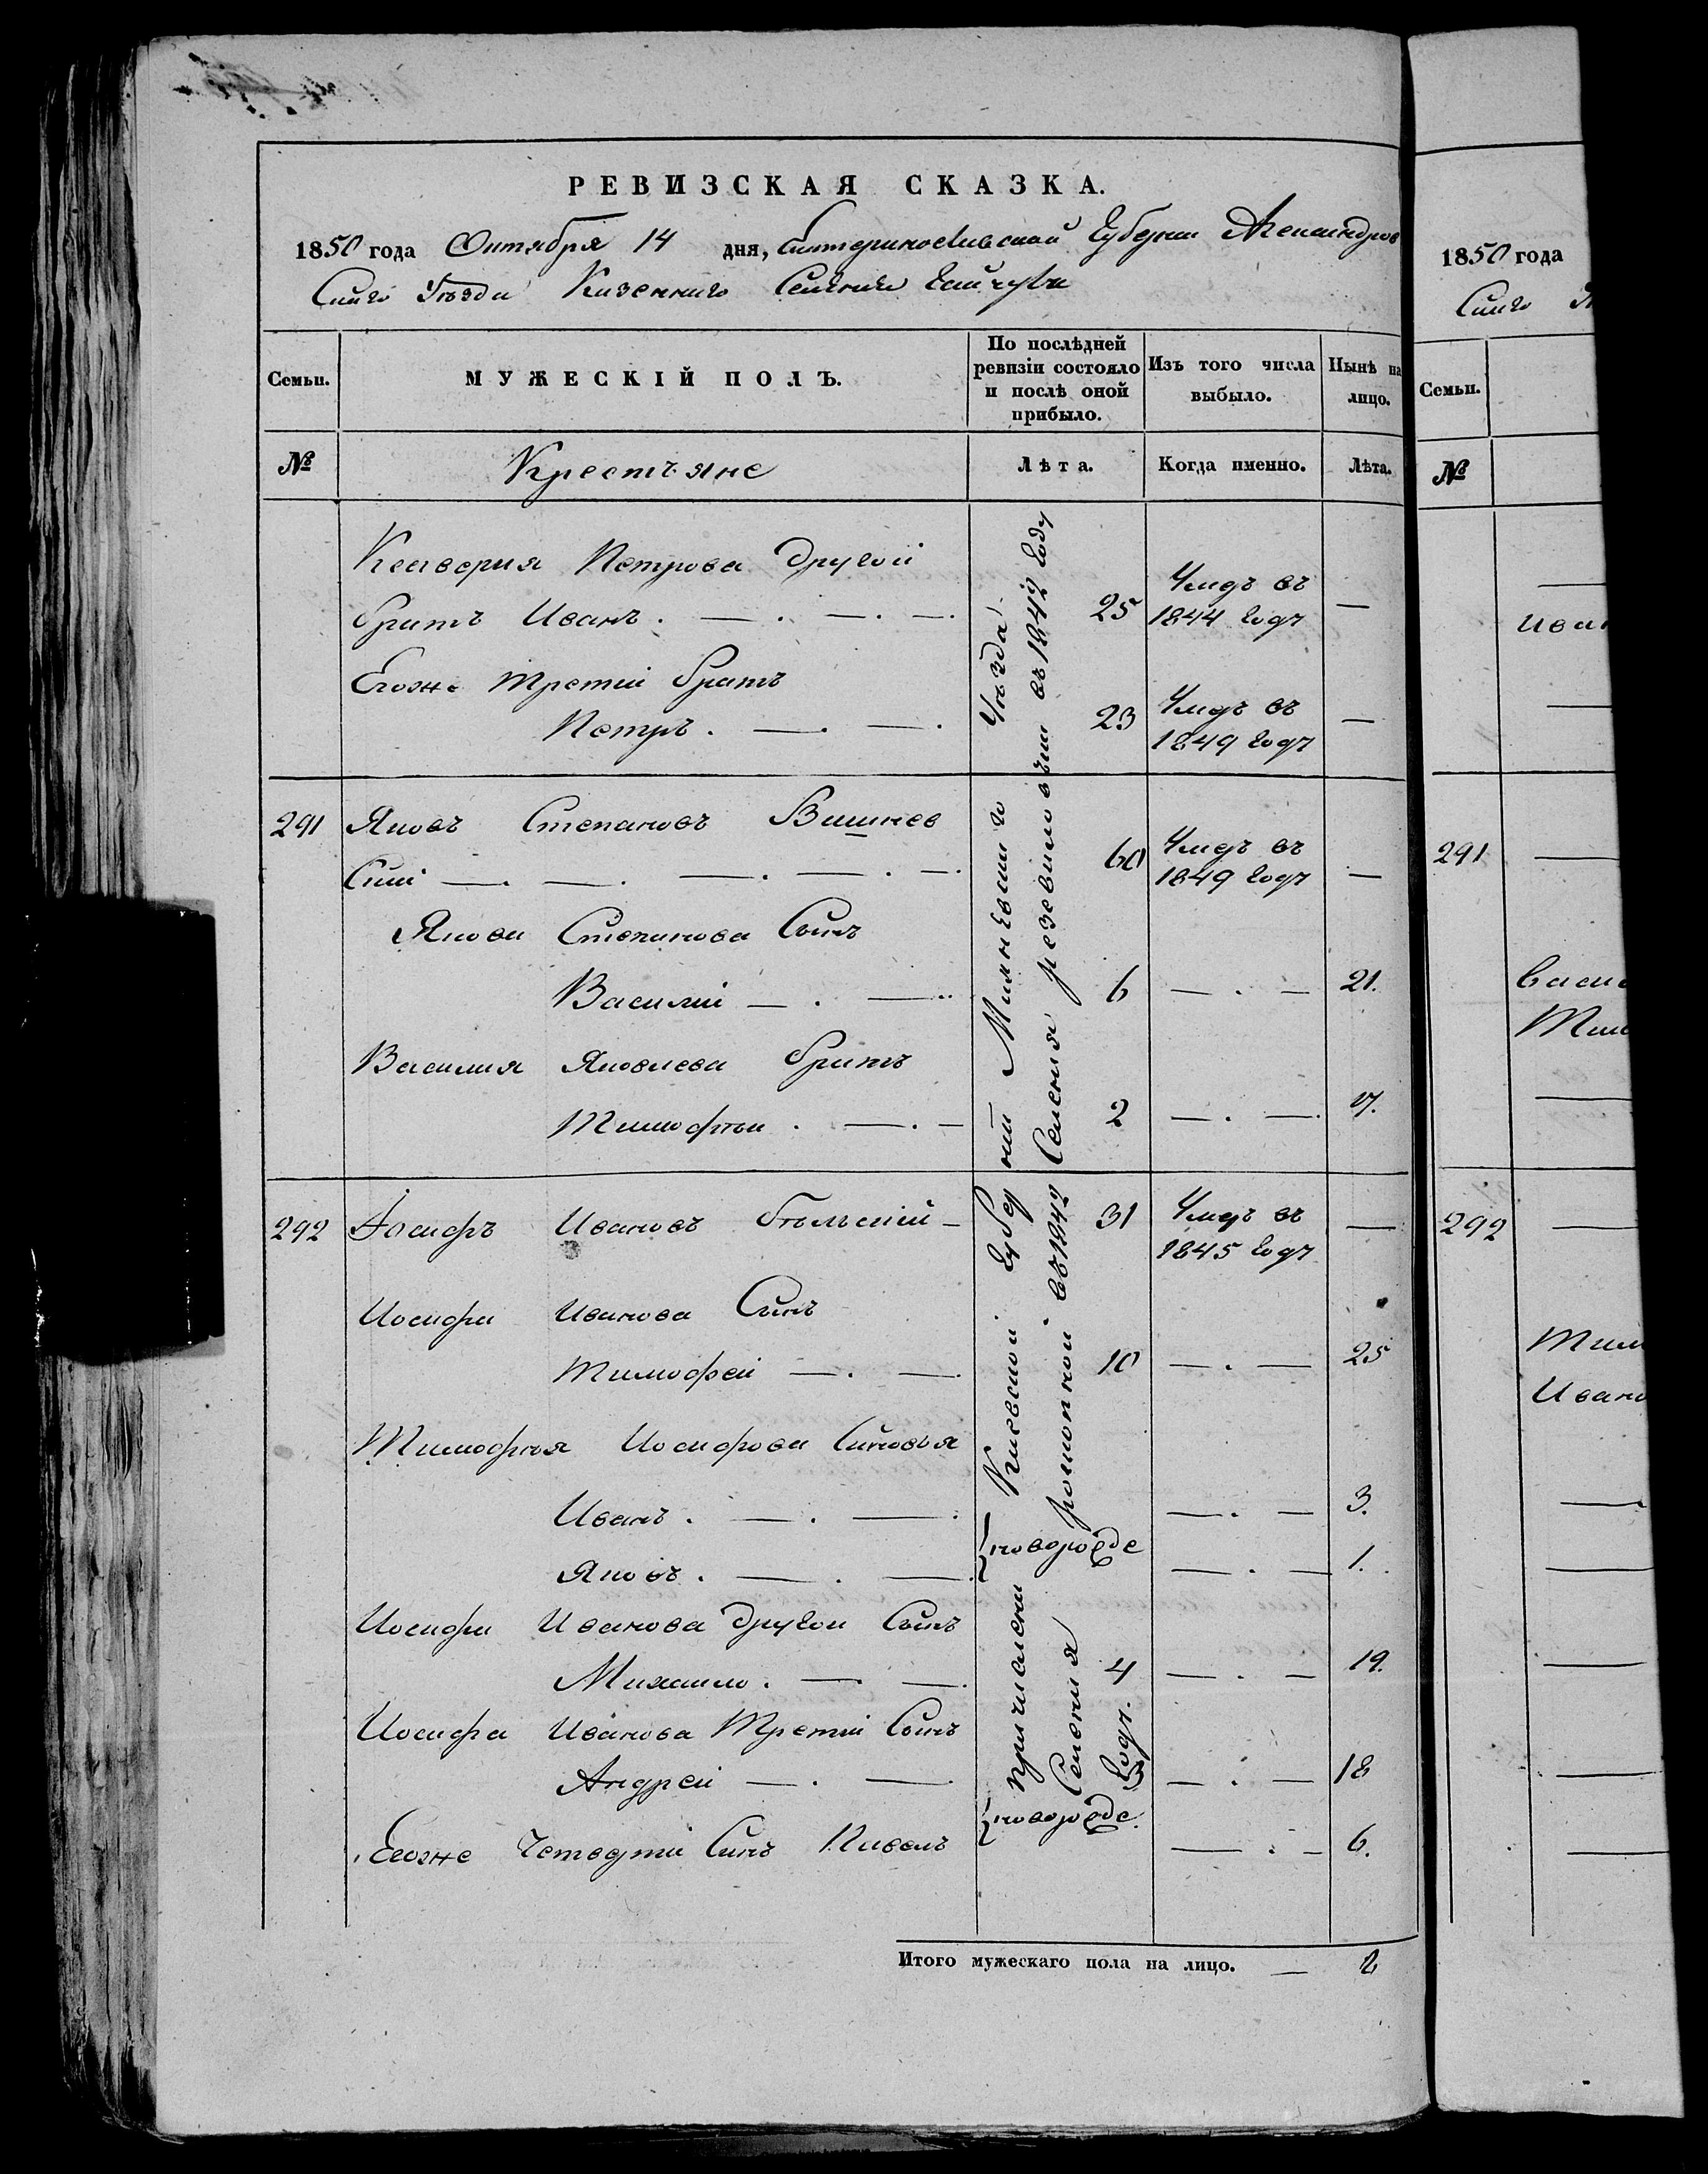 РЕВИЗСКАЯ СКАЗКА.
1850 года Октября 14 дня, Екатеринославской Губернии Александров
Скаго Уѣзда Казеннаго Селения Гайчула
Семьи.
МУЖЕСКІЙ ПОЛЪ.
По послѣдней ревизіи состояло и послѣ оной прибыло.
Изъ того числа выбыло.
Нынѣ на лицо.
№
Крестьяне
Лѣта.
Когда именно.
Лѣта.
Ксаверия Петрова другой
братъ Иванъ . — . — . — . 25 Умеръ въ 1844 году —
Егоже третий братъ
Петръ . — . — . 23 Умеръ въ 1849 году —
291 Яковъ Степановъ Вишнев
Скій — . — . — . — . — . 60 Умеръ въ 1849 году —
Якова Степанова Сынъ
Василий — . — 6 — . — 21.
Василия Яковлева братъ
Тимофѣй . — . — 2 — . — 17.
292 Іосифъ Ивановъ Бѣльский — 31 Умеръ въ 1845 году —
Иосифа Иванова Сынъ
Тимофей — . — . 10 — . — 25
Тимофѣя Иосифова Сыновья
Иванъ . — . — . — . — 3.
новорожде
Яковъ . — . — . — . — 1.
Иосифа Иванова другой Сынъ
Михаило . — . — . 4 — . — 19.
Иосифа Иванова Третий Сынъ
Андрей — . — 3 — . — 18
новорожде.
Егоже Четвертий Сынъ Павелъ — . — 6.
Причислены Киевской Губернии Уѣзда
Селения въ 1842 Селения въ 1842 году
году.
Итого мужескаго пола на лицо. —
1850 года
Скаго
Семьи.
№
Иван
291
Васи
Тим
292
Тим
Иван